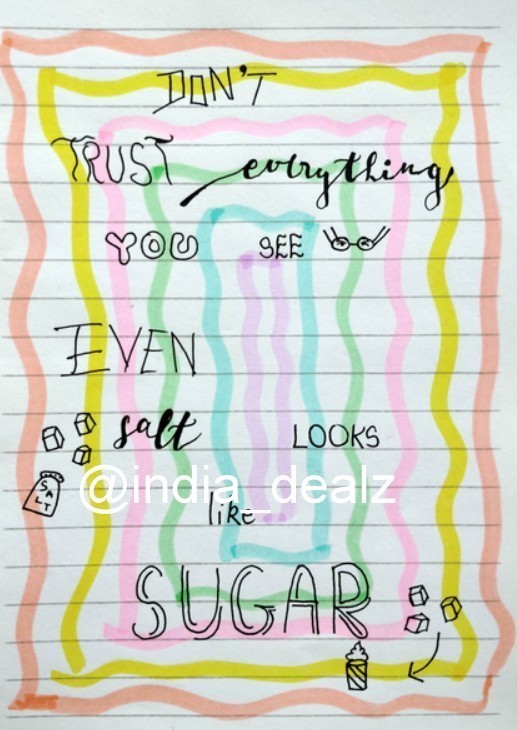 DON'T
TRUST everything
YOU SEE
EVEN
salt LOOKS
SALT
@india_dealz
like
SUGAR